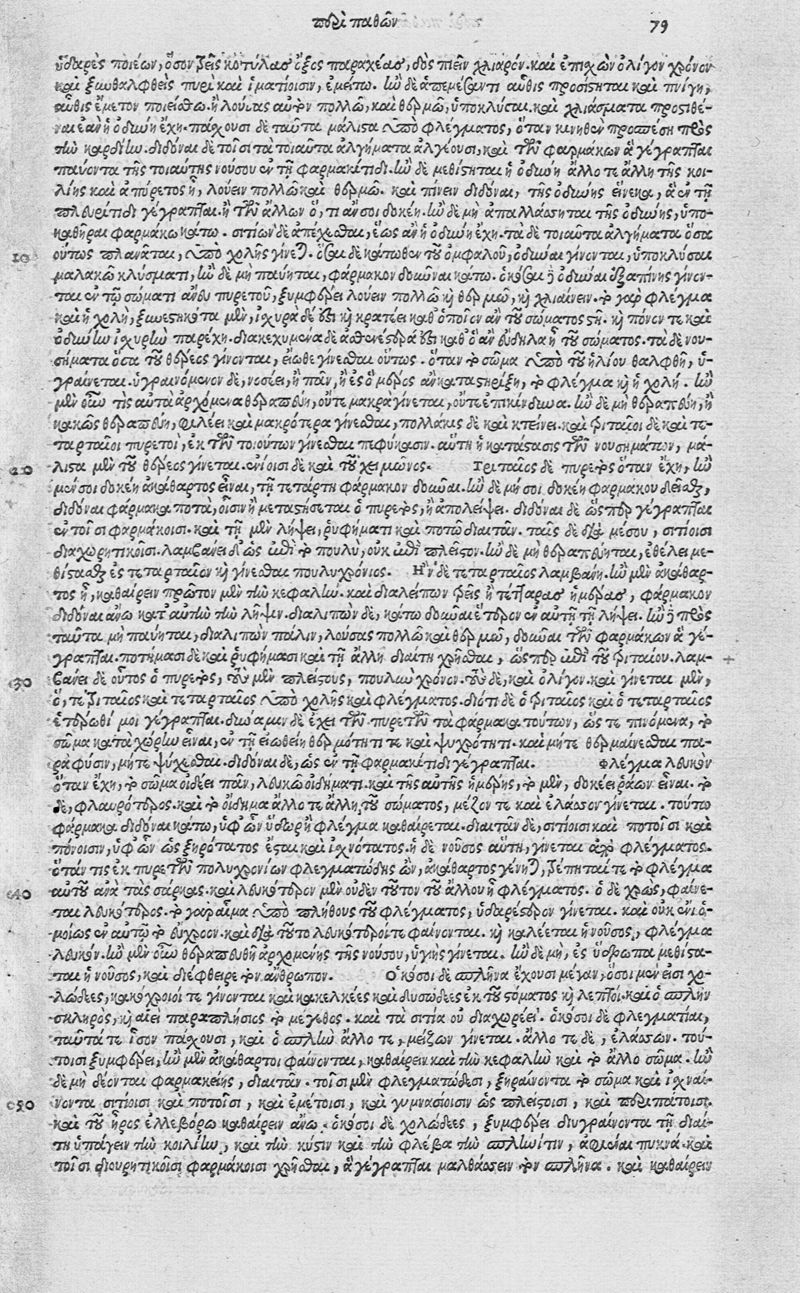 περὶ παθῶν 79
ὑδαρὲς ποιέων, ὅσον τρεῖς κοτύλας ὄξος παραχέας, δὸς πιεῖν χλιαρόν. καὶ ἐπιχὼν ὀλίγον χρόνον
καὶ ξυνθαλφθεὶς πυρὶ καὶ ἱματίοισιν, ἐμείτω. ἢν δὲ ἀπεμέσαντι αὖθις προσίστηται καὶ πνίγῃ,
αὖθις ἔμετον ποιείσθω. ἢ λούσας αὐτὸν πολλῷ, καὶ θερμῷ, ὑποκλύσαι. καὶ χλιάσματα προστιθέ-
ναι ἐὰν ἡ ὀδύνη ἔχῃ. πάσχουσι δὲ ταῦτα μάλιστα ὑπὸ φλέγματος, ὅταν κινηθὲν προσπέσῃ πρὸς
τὴν καρδίην. διδόναι δὲ τοῖσι τὰ τοιαῦτα ἀλγήματα ἀλγέουσι, καὶ τῶν φαρμάκων ἃ γέγραπται
παύοντα τῆς τοιαύτης νούσου ἐν τῇ φαρμακίτιδι. ἢν δὲ μεθίστηται ἡ ὀδύνη ἄλλοτε ἄλλῃ τῆς κοι-
λίης καὶ ἀπύρετος ᾖ, λούειν πολλῷ καὶ θερμῷ. καὶ πίνειν διδόναι, τῆς ὀδύνης εἵνεκα, ἃ ἐν τῇ
πλευρίτιδι γέγραπται. ἢ τῶν ἄλλων ὅ,τι ἄν σοι δοκέῃ. ἢν δὲ μὴ ἀπαλλάσσηται τῆς ὀδύνης, ὑπο-
καθῆραι φαρμάκῳ κάτω. σιτίων δὲ ἀπέχεσθαι, ἕως ἂν ἡ ὀδύνη ἔχῃ. τὰ δὲ τοιαῦτα ἀλγήματα ὅσα
10 οὕτως πλανᾶται, ὑπὸ χολῆς γίνεται. ὅσαι δὲ κάτωθεν τοῦ ὀμφαλοῦ, ὀδύναι γίνονται, ὑποκλύσαι
μαλακῷ κλύσματι, ἢν δὲ μὴ παύηται, φάρμακον δοῦναι κάτω. ὁκόσαι δὲ ὀδύναι ἐξαπίνης γίνον-
ται ἐν τῷ σώματι ἄνευ πυρετοῦ, ξυμφέρει λούειν πολλῷ καὶ θερμῷ, καὶ χλιαίνειν. τὸ γὰρ φλέγμα
καὶ ἡ χολὴ, ξυνεστηκότα μὲν, ἰσχυρὰ δέ ἐστι καὶ κρατέει καθ' ὁποῖον ἂν τοῦ σώματος στῇ. καὶ πόνον τε καὶ
ὀδύνην ἰσχυρὴν παρέχει. διακεχυμένα δὲ ἀσθενέστερά ἐστι καθ' ὃ ἂν ἔνδηλα ᾖ τοῦ σώματος. τὰ δὲ νου-
σήματα ὅσα τοῦ θέρεος γίνονται, εἴωθε γίνεσθαι οὕτως. ὅταν τὸ σῶμα ὑπὸ τοῦ ἡλίου θαλφθῇ, ὑ-
γραίνεται. ὑγραινόμενον δὲ, νοσέει, ἢ πᾶν, ἢ ἐς ὃ μέρος ἂν καταστηρίξῃ, τὸ φλέγμα καὶ ἡ χολή. ἢν
μὲν οὖν τις αὐτὰ ἀρχόμενα θεραπεύῃ, οὔτε μακρὰ γίνεται, οὔτε ἐπικίνδυνα. ἢν δὲ μὴ θεραπεύῃ, ἢ
κακῶς θεραπεύῃ, φιλέει καὶ μακρότερα γίνεσθαι, πολλάκις δὲ καὶ κτείνει. καὶ τριταῖοι δὲ καὶ τε-
ταρταῖοι πυρετοὶ, ἐκ τῶν τοιούτων γίνεσθαι πεφύκασιν. αὕτη ἡ κατάστασις τῶν νουσημάτων, μά-
20 λιστα μὲν τοῦ θέρεος γίνεται. ἐνίοισι δὲ καὶ τοῦ χειμῶνος. Τριταῖος δὲ πυρετὸς ὅταν ἔχῃ, ἢν
μέν σοι δοκέῃ ἀκάθαρτος εἶναι, τῇ τετάρτῃ φάρμακον δοῦναι. ἢν δὲ μή σοι δοκέῃ φαρμάκου δεῖσθαι,
διδόναι φάρμακα ποτὰ, οἷσιν ἢ μεταστήσεται ὁ πυρετὸς, ἢ ἀπολείψει. διδόναι δὲ ὥσπερ γέγραπται
ἐν τοῖσι φαρμάκοισι. καὶ τῇ μὲν λήψει, ῥυφήματι καὶ ποτῷ διαιτᾶν. ταῖς δὲ διὰ μέσου, σιτίοισι
διαχωρητικοῖσι. λαμβάνει δ' ὡς ἐπὶ τὸ πουλὺ, οὐκ ἐπὶ πλεῖστον. ἢν δὲ μὴ θεραπεύηται, ἐθέλει με-
θίστασθαι ἐς τεταρταῖον καὶ γίνεσθαι πουλυχρόνιος. Ἢν δὲ τεταρταῖος λαμβάνῃ. ἢν μὲν ἀκάθαρ-
τος ᾖ, καθαίρειν πρῶτον μὲν τὴν κεφαλήν. καὶ διαλείπων τρεῖς ἢ τέτταρας ἡμέρας, φάρμακον
διδόναι ἄνω κατ' αὐτὴν τὴν λῆψιν. διαλιπὼν δὲ, κάτω δοῦναι ἕτερον ἐν αὐτῇ τῇ λήψει. ἢν δὲ πρὸς
ταῦτα μὴ παύηται, διαλιπὼν πάλιν, λούσας πολλῷ καὶ θερμῷ, δοῦναι τῶν φαρμάκων ἃ γέ-
γραπται. ποτήμασι δὲ καὶ ῥυφήμασι καὶ τῇ ἄλλῃ διαίτῃ χρῆσθαι, ὥσπερ ἐπὶ τοῦ τριταίου. λαμ-
30 βάνει δὲ οὗτος ὁ πυρετὸς, τοὺς μὲν πλείστους, πουλὺν χρόνον. τοὺς δὲ, καὶ ὀλίγον. καὶ γίνεται μὲν,
ὅ,τε τριταῖος καὶ τεταρταῖος ὑπὸ χολῆς καὶ φλέγματος. διότι δὲ ὁ τριταῖος καὶ ὁ τεταρταῖος
ἑτέρωθί μοι γέγραπται. δύναμιν δὲ ἔχει τῶν πυρετῶν τὰ φάρμακα τούτων, ὥστε πινόμενα, τὸ
σῶμα κατὰ χώρην εἶναι, ἐν τῇ εἰωθείῃ θερμότητί τε καὶ ψυχρότητι. καὶ μήτε θερμαίνεσθαι πα-
ρὰ φύσιν, μήτε ψύχεσθαι. διδόναι δὲ, ὡς ἐν τῇ φαρμακίτιδι γέγραπται. Φλέγμα λευκὸν
ὅταν ἔχῃ, τὸ σῶμα οἰδέει πᾶν, λευκῷ οἰδήματι. καὶ τῆς αὐτῆς ἡμέρης, τὸ μὲν, δοκέει ῥάων εἶναι. τὸ
δὲ, φλαυρότερος. καὶ τὸ οἴδημα ἄλλοτε ἄλλῃ τοῦ σώματος, μεῖζόν τε καὶ ἔλασσον γίνεται. τούτῳ
φάρμακα διδόναι κάτω, ὑφ' ὧν ὕδωρ ἢ φλέγμα καθαίρεται. διαιτᾶν δὲ, σιτίοισι καὶ ποτοῖσι καὶ
πόνοισιν, ὑφ' ὧν ὡς ξηρότατος ἔσται καὶ ἰσχνότατος. ἡ δὲ νοῦσος αὕτη, γίνεται ἀπὸ φλέγματος.
ὅταν τις ἐκ πυρετῶν πολυχρονίων φλεγματώδης ὢν, ἀκάθαρτος γένηται, τρέπηται τε τὸ φλέγμα
40 αὐτοῦ ἀνὰ τὰς σάρκας. καὶ λευκότερον μὲν οὐδὲν τοῦτον τοῦ ἄλλου ἢ φλέγματος. ὁ δὲ χρὼς, φαίνε-
ται λευκότερος. τὸ γὰρ αἷμα ὑπὸ πλήθους τοῦ φλέγματος, ὑδαρέστερον γίνεται. καὶ οὐκ ἔνι ὁ-
μοίως ἐν αὐτῷ τὸ εὔχροον. καὶ διὰ τοῦτο λευκότεροί τε φαίνονται. καὶ καλέεται ἡ νοῦσος, φλέγμα
λευκόν. ἢν μὲν οὖν θεραπευθῇ ἀρχομένης τῆς νούσου, ὑγιὴς γίνεται. ἢν δὲ μὴ, ἐς ὕδρωπα μεθίστα-
ται ἡ νοῦσος, καὶ διέφθειρε τὸν ἄνθρωπον. Ὁκόσοι δὲ σπλῆνα ἔχουσι μέγαν, ὅσοι μέν εἰσι χο-
λώδεες, κακόχροιοί τε γίνονται καὶ κακελκέες καὶ δυσώδεες ἐκ τοῦ στόματος καὶ λεπτοί. καὶ ὁ σπλὴν
σκληρὸς, καὶ αἰεὶ παραπλήσιος τὸ μέγεθος. καὶ τὰ σιτία οὐ διαχωρέει. ὁκόσοι δὲ φλεγματίαι,
ταῦτά τε ἧσσον πάσχουσι, καὶ ὁ σπλὴν ἄλλοτε, μείζων γίνεται. ἄλλοτε δὲ, ἐλάσσων. τού-
τοισι ξυμφέρει, ἢν μὲν ἀκάθαρτοι φαίνονται, καθαίρειν καὶ τὴν κεφαλὴν καὶ τὸ ἄλλο σῶμα. ἢν
δὲ μὴ δέονται φαρμακείης, διαιτᾶν. τοῖσι μὲν φλεγματώδεσι, ξηραίνοντα τὸ σῶμα καὶ ἰσχναί-
50 νοντα σιτίοισι καὶ ποτοῖσι, καὶ ἐμέτοισι, καὶ γυμνασίοισιν ὡς πλείστοισι, καὶ περιπάτοισι.
καὶ τοῦ ἦρος ἐλλεβόρῳ καθαίρειν ἄνω. ὁκόσοι δὲ χολώδεες, ξυμφέρει διυγραίνοντα τῇ διαί-
τῃ ὑπάγειν τὴν κοιλίην, καὶ τὴν κύστιν καὶ τὴν φλέβα τὴν σπληνῖτιν, ἀφιέναι πυκνά. καὶ
τοῖσι διουρητικοῖσι φαρμάκοισι χρῆσθαι, ἃ γέγραπται μαλθάσσειν τὸν σπλῆνα. καὶ καθαίρειν